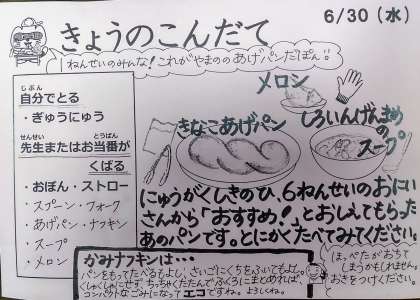 6/30（水）
きょうのこんだて
1ねんせいのみんな！これがやまののあげパンだぽん!!
自分でとる
じぶん
・ぎゅうにゅう
せんせい とうばん
先生またはお当番が
くばる
・おぼん・ストロー
・スプーン・フォーク
・あげパン・ナフキン
・スープ
・メロン
メロン
きなこあげパン
しろいんげんまめ
のスープ
にゅうがくしきのひ、6ねんせいのおにい
さんから「おすすめ！」とおしえてもらった
あのパンです。とにかくたべてみてください。
かみナフキンは…
パンをもってたべるもよし、さいごにくちをふいてもよし。
くしゃくしゃにせず、ちっちゃくたたんでふくろにまとめれば、
コンパクトなごみになってエコですね。よろしくね。
ほっぺたがおちて
しまうかもしれません。
おきをつけください。